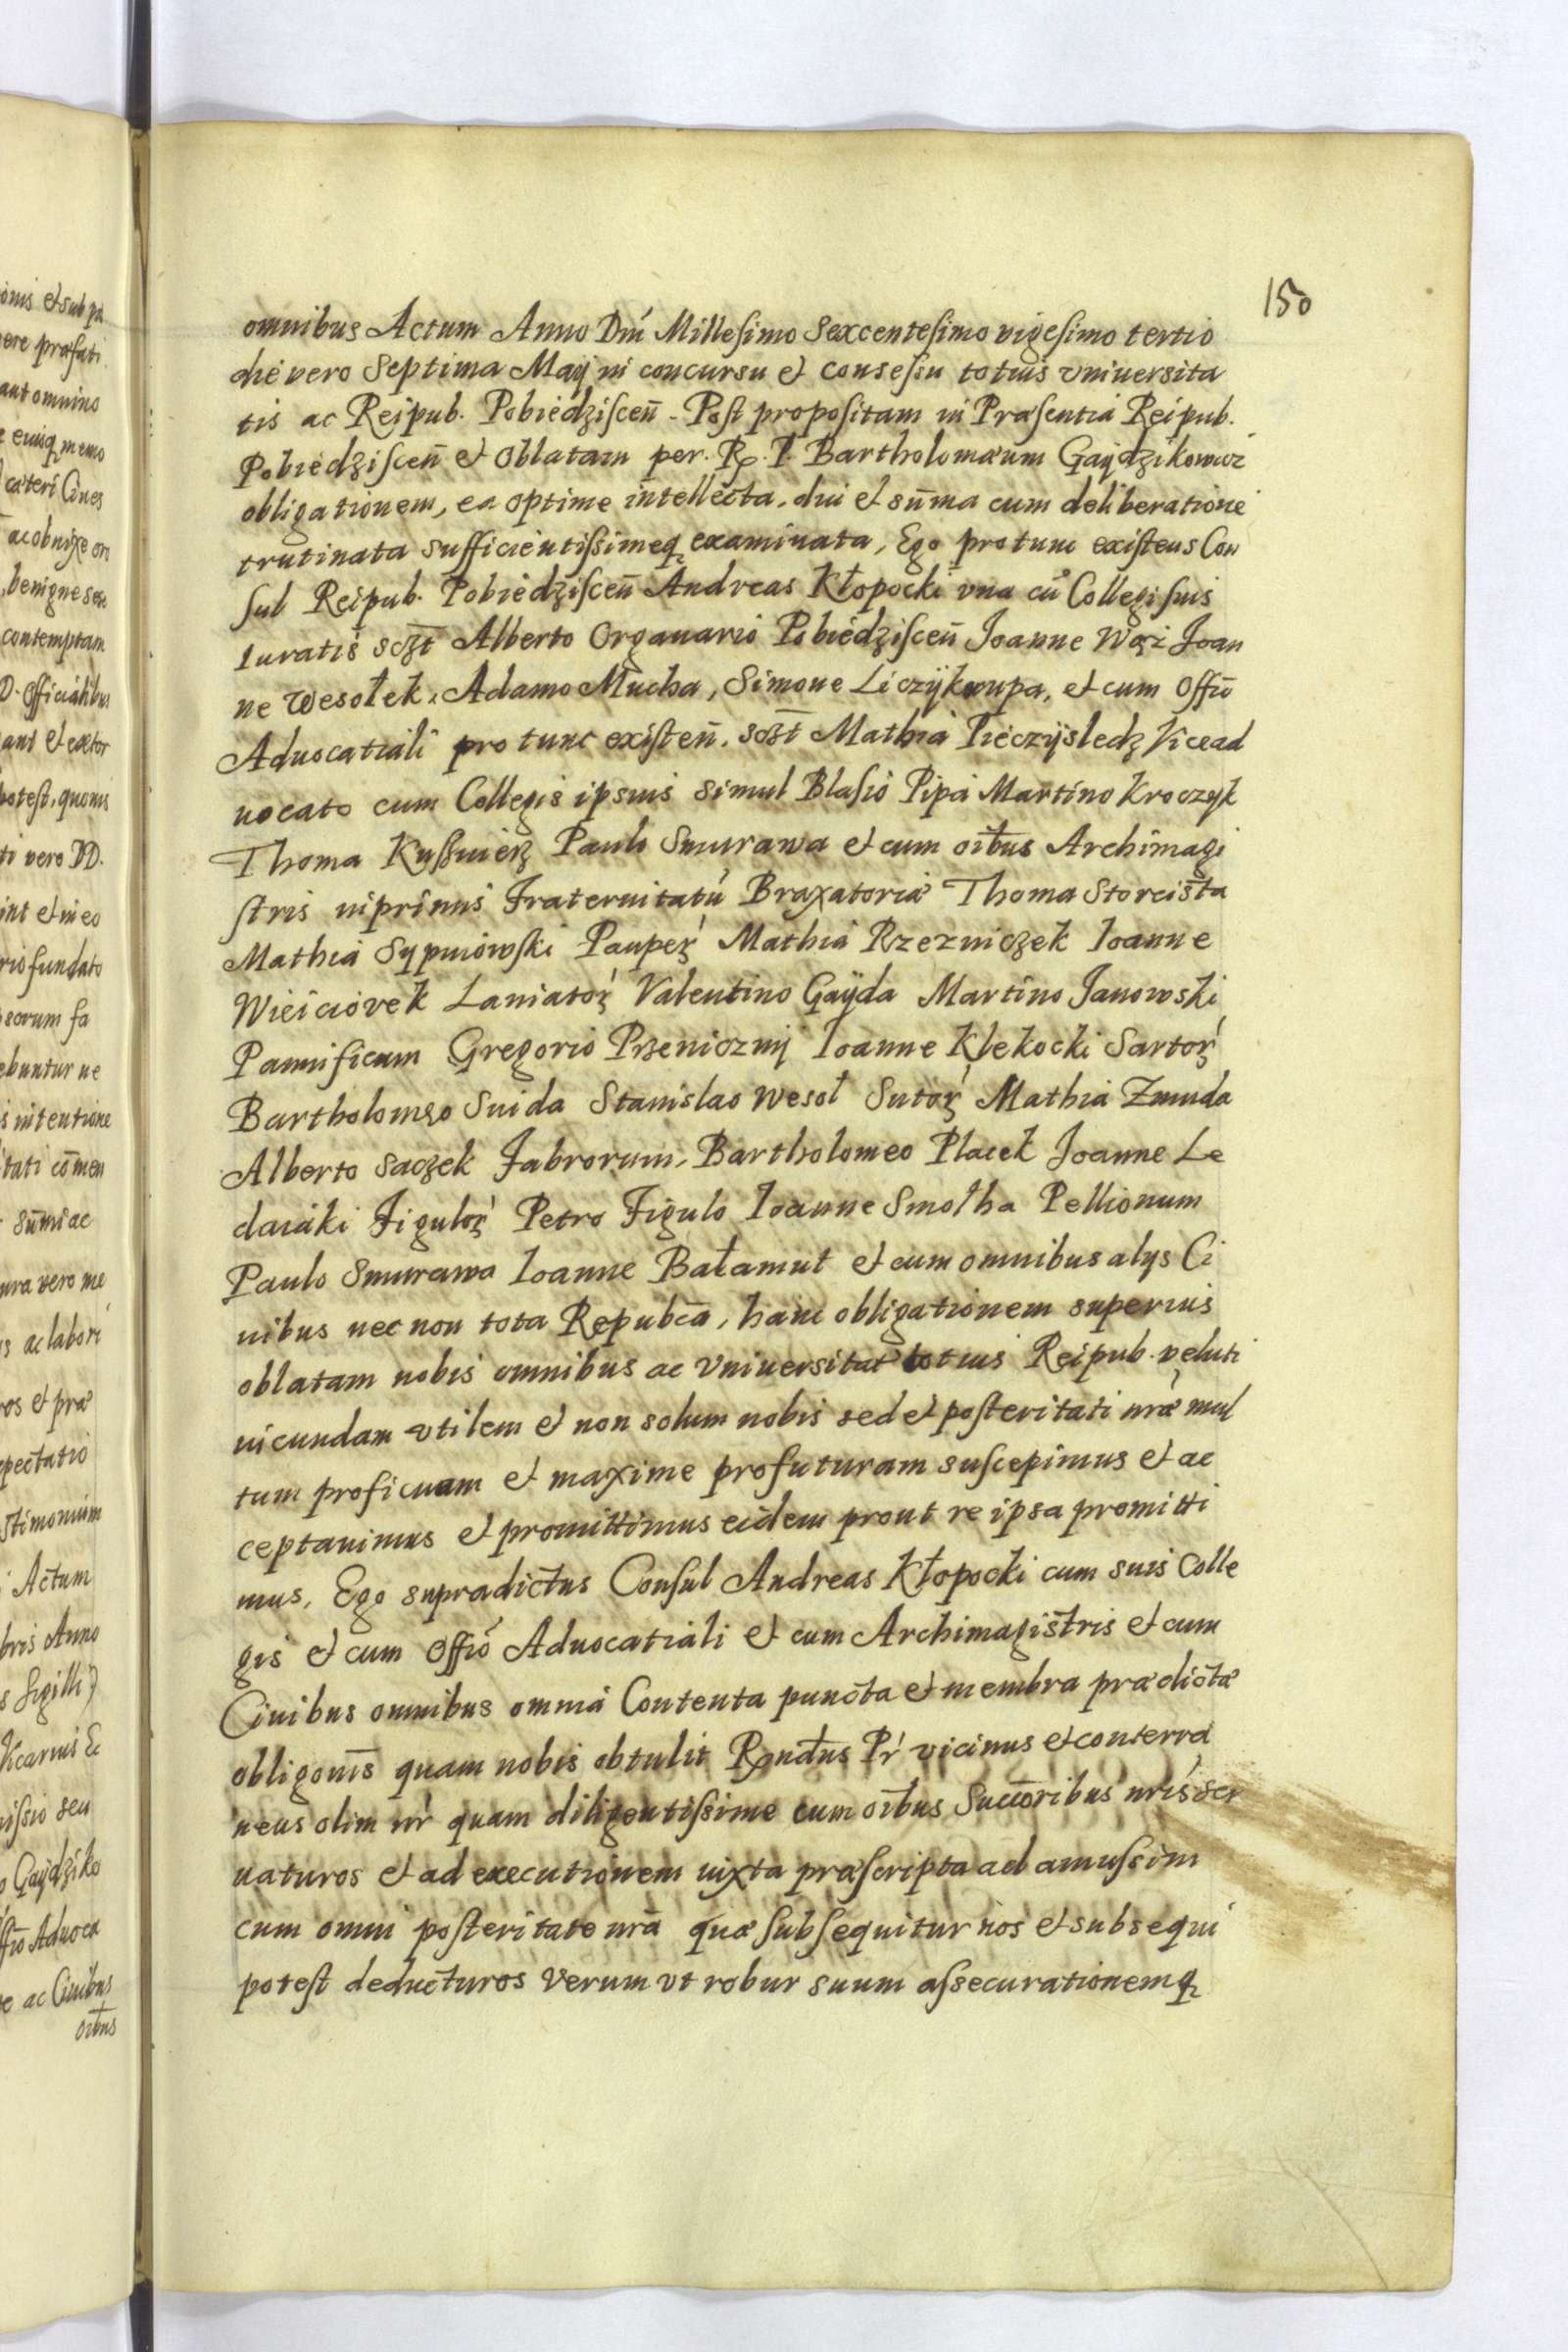 150
omnibus Actum Anno Dni Millesimo sexcentesimo vigesimo tertio
die vero Septima Maij in concursu et consessu totius vniuersita
tis ac Reipub. Pobiedziscen̄ - Post propositam in Præsentia Reipub.
Pobiedziscen̄ et oblatam per. R. P. Bartholomæum Gaÿdzikowicz
obligationem, ea optime intellecta, diu et sum̄a cum deliberatione
trutinata sufficientissimeq examinata, Ego protunc existens Con
sul Reipub. Pobiedziscen̄ Andreas Kłopocki vna cū Collegis suis
Iuratis sczt Alberto Organario Pobiedziscen̄ Joanne Wąż Joan
ne Wesołek, Adamo Mucha, Simone Liczÿkrupa, et cum Offīo
Aduocatiali pro tunc existen̄. sczt Mathia Pieczÿsledz Vicead
uocato cum Collegis ipsius simul Blasio Pipa Martino Kroczyk
Thoma Kuſznierz Paulo Smurawa et cum oībus Archimagi
stris inprimis Fraternitatū Braxatoriæ Thoma Storcista
Mathia Sypniowski Pauper Mathia Rzezniczek Ioanne
Wieiciorek Laniator Valentino Gaÿda Martino Janowski
Pannificum Gregorio Pszenicznÿ Ioanne Klekocki Sartor
Bartholomeo Snida Stanislao Wesoł Sutor Mathia Zmuda
Alberto Saczek Fabrorum, Bartholomeo Placek Joanne Le
daiaki Figulor Petro Figulo Ioanne Smolha Pellionum
Paulo Smurawa Ioanne Bałamut et cum omnibus alys Ci
uibus nec non tota Republ̄ca, hanc obligationem superius
oblatam nobis omnibus ac Vniuersitati totius Reipub. veluti
iucundam vtilem et non solum nobis sed et posteritati nr̄æ mul
tum proficuam et maxime profuturam suscepimus et ac
ceptauimus et promittimus eidem prout re ipsa promitti
mus, Ego supradictus Consul Andreas Kłopocki cum suis Colle
gis et cum Offīo Aduocatiali et cum Archimagistris et cum
Ciuibus omnibus omnia Contenta puncta et membra prædictæ
obligonīs quam nobis obtulit Rndus Pr vicinus et conterra
neus olim nr quam diligentissime cum oībus Succoribus nrīs ser
uaturos et ad executionem iuxta præscripta ad amussim
cum omni posteritate nrā quæ subsequitur nos et subsequi
potest deducturos Verum vt robur suum assecurationemq